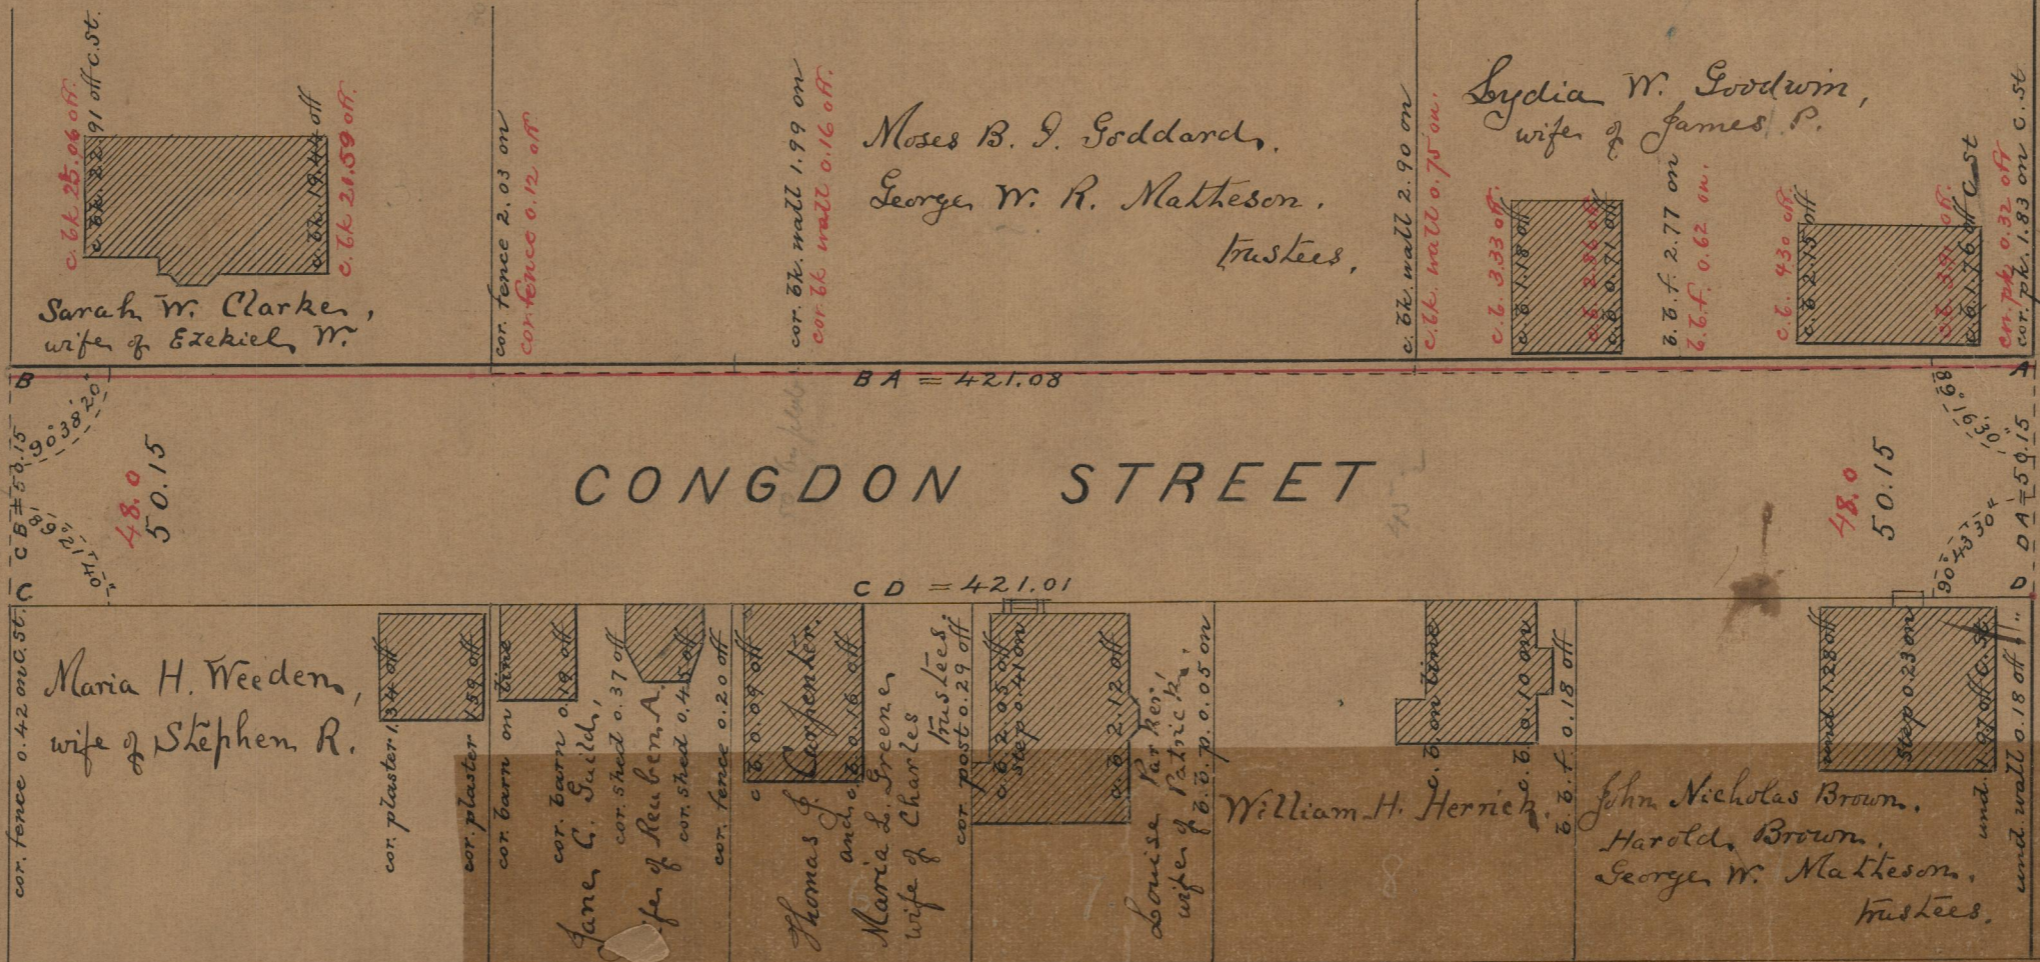 c. bk. 25.06 off.
c. bk. 22.91 off C. st.
c. bk. 19.44 off
c. bk. 21.59 off.
Sarah W. Clarke,
wife of Ezekiel W.
cor. fence 2.03 on
cor. fence 0.12 off
cor. bk. wall 1.99 on
cor. bk wall 0.16 off.
Moses B. I. Goddard.
George W. R. Matteson.
trustees.
c. bk. wall 2.90 on
c. bk. wall 0.75 on.
Lydia W. Goodwin,
wife of James P.
c. b. 3.33 off.
c. b 1.18 off
c. b. 2.86 off
c. b. 0.71 off
b. b. f. 2.77 on
b. b. f. 0.62 on.
c. b. 4.30 off.
c. b 2.15 off
c. b. 3.91 off.
c. b 1.76 off C. st
cor. pk. 0.32 off
cor. pk. 1.83 on C. st
B
BA = 421.08
A
90° 38' 20"
89° 16' 30"
CB = 50.15
48.0
50.15
CONGDON STREET
48.0
50.15
DA = 50.15
89° 21' 40"
90° 43' 30"
C
CD = 421.01
D
cor. fence 0.42 on C. st.
Maria H. Weeden,
wife of Stephen R.
cor. plaster 1.34 off
cor. plaster 1.59 off
cor. barn on line
cor. barn 0.19 off
Jane C. Guild,
cor. shed 0.37 off
wife of Reuben A.
cor. shed 0.45 off
cor. fence 0.20 off
c. b. 0.09 off
Thomas J. Carpenter.
and
c. b. 0.16 off
Maria L. Greene
wife of Charles
trustees.
cor. post 0.29 off
c. b. 2.05 off
step 0.41 on
c. b 2.12 off
Louise Parker,
wife of Patrick.
b. b. p. 0.05 on
William H. Herrick.
c. b. on line
c. b. 0.10 on
b. b. f. 0.18 off
John Nicholas Brown.
Harold Brown.
George W. Matteson.
trustees.
und. 1.28 off
step 0.23 on
und. 1.97 off C. st.
und. wall 0.18 off "
7
8